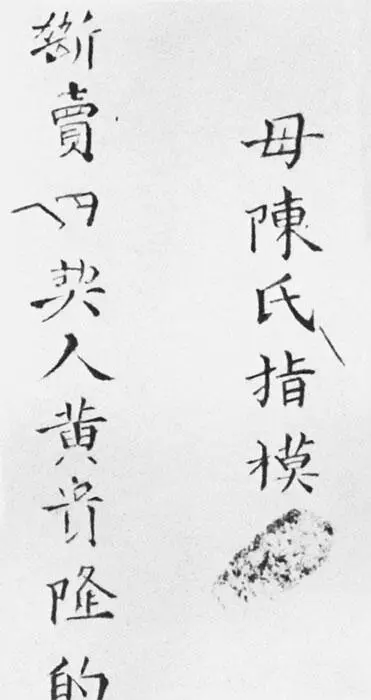 母陳氏指模
斷賣契人黃隆的